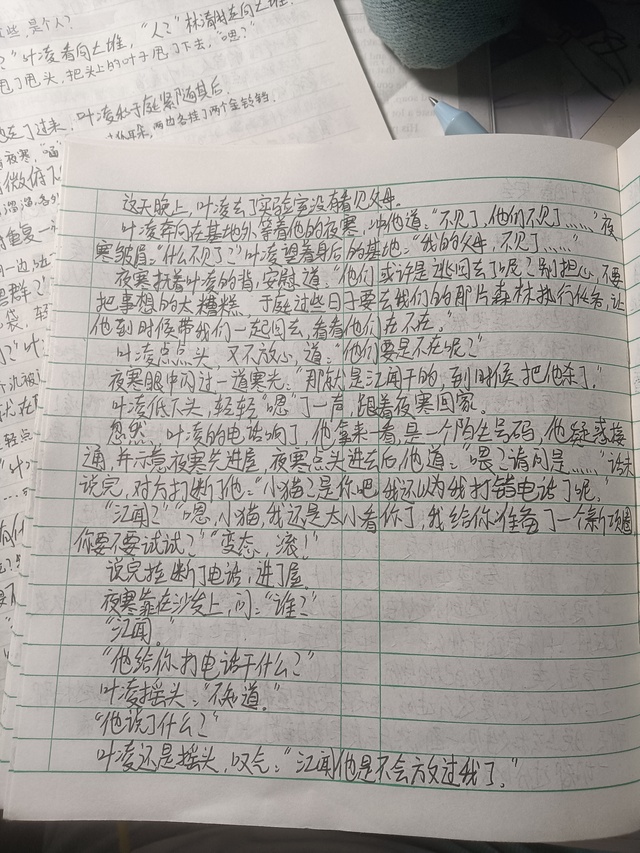 些，是个人？
？”叶凌看向土堆，“人？”林清
甩了甩头，把头上的叶子甩了下去，“嗯？”
了过来，叶凌和于庭紧随其后。
两边各挂了两个金铃铛
这天晚上，叶凌去了实验室没有看见父母。
叶凌奔向在基地外等着他的夜寒，冲他道：“不见了，他们不见了……”夜
寒皱眉：“什么不见了？”叶凌望着身后的基地：“我的父母，不见了……”
夜寒抚着叶凌的背，安慰道：“他们或许是逃回去了呢？别担心，不要
把事想的太糟糕，于庭过些日子要去我们的那片森林执行任务，让
他到时候带我们一起回去，看看他们在不在。”
叶凌点点头，又不放心，道：“他们要是不在呢？”
夜寒眼中闪过一道寒光：“那就是江闻干的，到时候把他杀了。”
叶凌低下头，轻轻“嗯”了一声，跟着夜寒回家。
忽然，叶凌的电话响了，他拿来一看，是一个陌生号码，他疑惑接
通，并示意夜寒先进屋，夜寒点头进去后，他道：“喂？请问是……”话未
说完，对方打断了他：“小猫？是你吧，我还以为我打错电话了呢。”
“江闻？”“嗯，小猫，我还是太小看你了，我给你准备了一个新项圈，
你要不要试试？”“变态，滚！”
说完挂断了电话，进了屋
夜寒靠在沙发上，问：“谁？”
“江闻。”
“他给你打电话干什么？”
叶凌摇头：“不知道。”
“他说了什么？”
叶凌还是摇头，叹气：“江闻他是不会放过我了。”